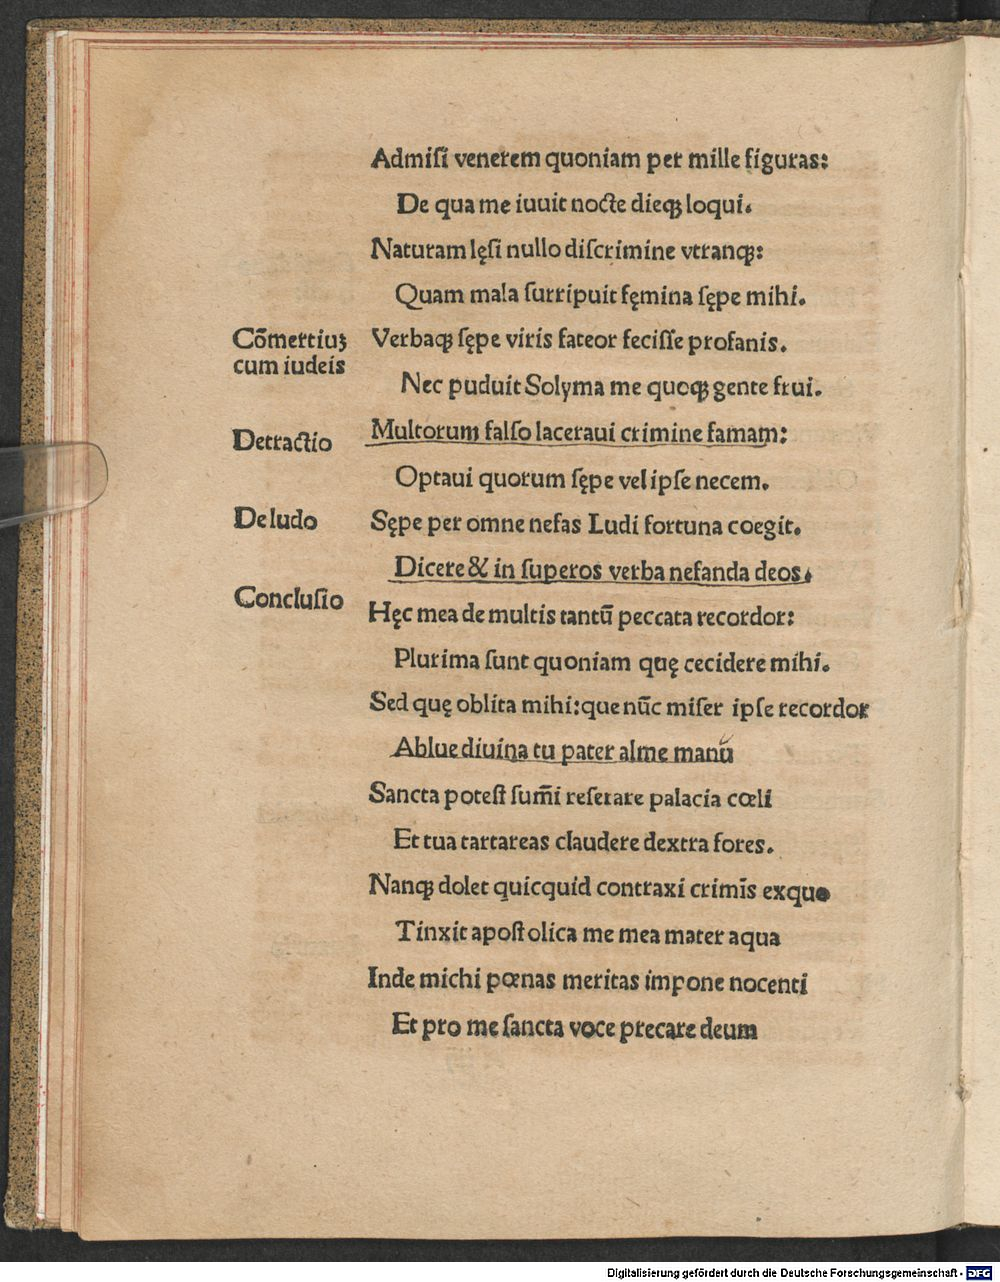 Admisi venerem quoniam per mille figuras:
De qua me iuuit nocte dieqꝫ loqui.
Naturam lęsi nullo discrimine vtranqꝫ:
Quam mala surripuit fęmina sępe mihi.
Cōmertiuꝫ
cum iudeis
Verbaqꝫ sępe viris fateor fecisse profanis.
Nec puduit Solyma me quoqꝫ gente frui.
Detractio
Multorum falso laceraui crimine famam:
Optaui quorum sępe vel ipse necem.
De ludo
Sępe per omne nefas Ludi fortuna coegit.
Dicere & in superos verba nefanda deos.
Conclusio
Hęc mea de multis tantū peccata recordor:
Plurima sunt quoniam quę cecidere mihi.
Sed quę oblita mihi: que nūc miser ipse recordor
Ablue diuina tu pater alme manū
Sancta potest sum̄i reserare palacia cœli
Et tua tartareas claudere dextra fores.
Nanqꝫ dolet quicquid contraxi crimīs exquo
Tinxit apostolica me mea mater aqua
Inde michi pœnas meritas impone nocenti
Et pro me sancta voce precare deum
Digitalisierung gefördert durch die Deutsche Forschungsgemeinschaft - DFG